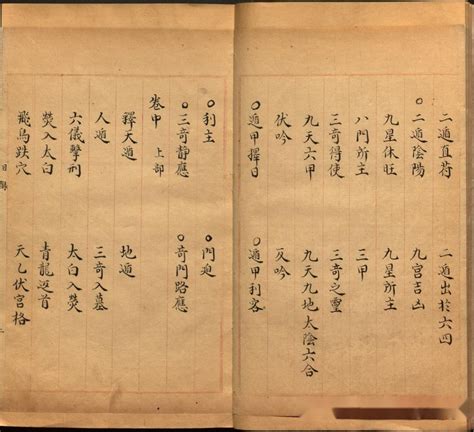 二遁直符 二遁出於六四
○二遁陰陽 九宮吉凶
九星休旺 九星所主
八門所主 三甲
三奇得使 三奇之靈
九天六甲 九天九地太陰六合
伏吟 反吟
○遁甲擇日 ○遁甲利客
○利主 ○門迫
○三奇靜應 ○奇門路應
卷中 上部
釋天遁 地遁
人遁 三奇入墓
六儀擊刑 太白入熒
熒入太白 青龍返首
飛鳥跌穴 天乙伏宮格